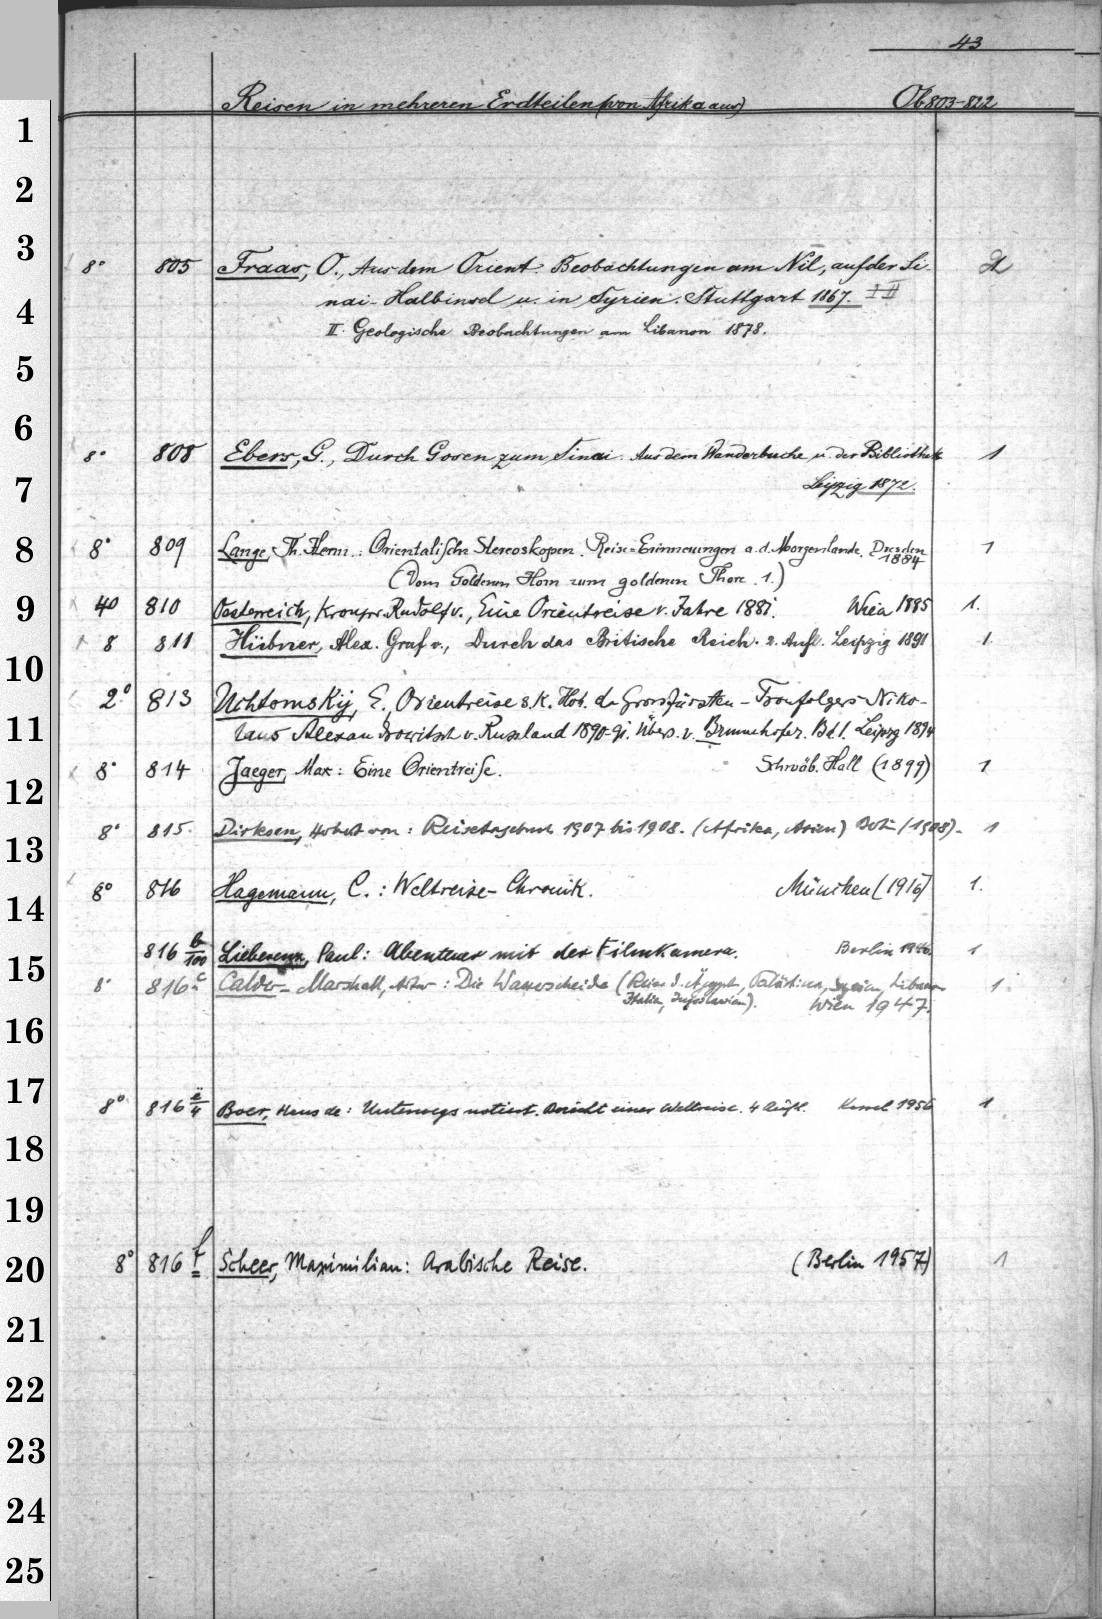 43
Reisen in mehreren Erdteilen (von Afrika aus) Ob 803-822
1
2
3
8° 805 Fraas, O., Aus dem Orient. Beobachtungen am Nil, auf der Si-
4
nai-Halbinsel u. in Syrien. Stuttgart 1867. I II
II. Geologische Beobachtungen am Libanon 1878.
5
6
8° 808 Ebers, G., Durch Gosen zum Sinai. Aus dem Wanderbuche u. der Bibliothek 1
7
Leipzig 1872.
8
8° 809 Lange, Th. Herm.: Orientalische Stereoskopen. Reise-Erinnerungen a. d. Morgenlande. Dresden 1884 1
(Vom Goldenen Horn zum goldenen Thore. 1.)
9
4° 810 Oesterreich, Kronpr. Rudolf v., Eine Orientreise v. Jahre 1881. Wien 1885 1.
8 811 Hübner, Alex. Graf v., Durch das Britische Reich. 2. Aufl. Leipzig 1891 1
10
2° 813 Uchtomskij, E., Orientreise s. K. Hoh. d. Grossfürsten-Tronfolgers Niko-
11
laus Alexandrowitsch v. Russland 1890-91. Übers. v. Brunnhofer. Bd. 1. Leipzig 1894
8° 814 Jaeger, Max: Eine Orientreise. Schwäb. Hall (1899) 1
12
13
8° 815. Dirksen, von: Reisetagebuch 1907 bis 1908. (Afrika, Asien) (1908). 1
14
8° 816 Hagemann, C.: Weltreise-Chronik. München (1916) 1.
15
816 b/100 Lieberenz, Paul: Abenteuer mit der Filmkamera. Berlin 1940. 1
8° 816 c Calder-Marshall, Artur: Die Wasserscheide (Reise d. Ägypt, Palästina, Syrien, Libanon 1
Italien, Jugoslawien). Wien 1947.
16
17
8° 816 e/4 Boer, Hans de: Unterwegs notiert. Bericht einer Weltreise. 4 Aufl. Kassel 1956 1
18
19
20
8° 816 f Scheer, Maximilian: Arabische Reise. (Berlin 1957) 1
21
22
23
24
25